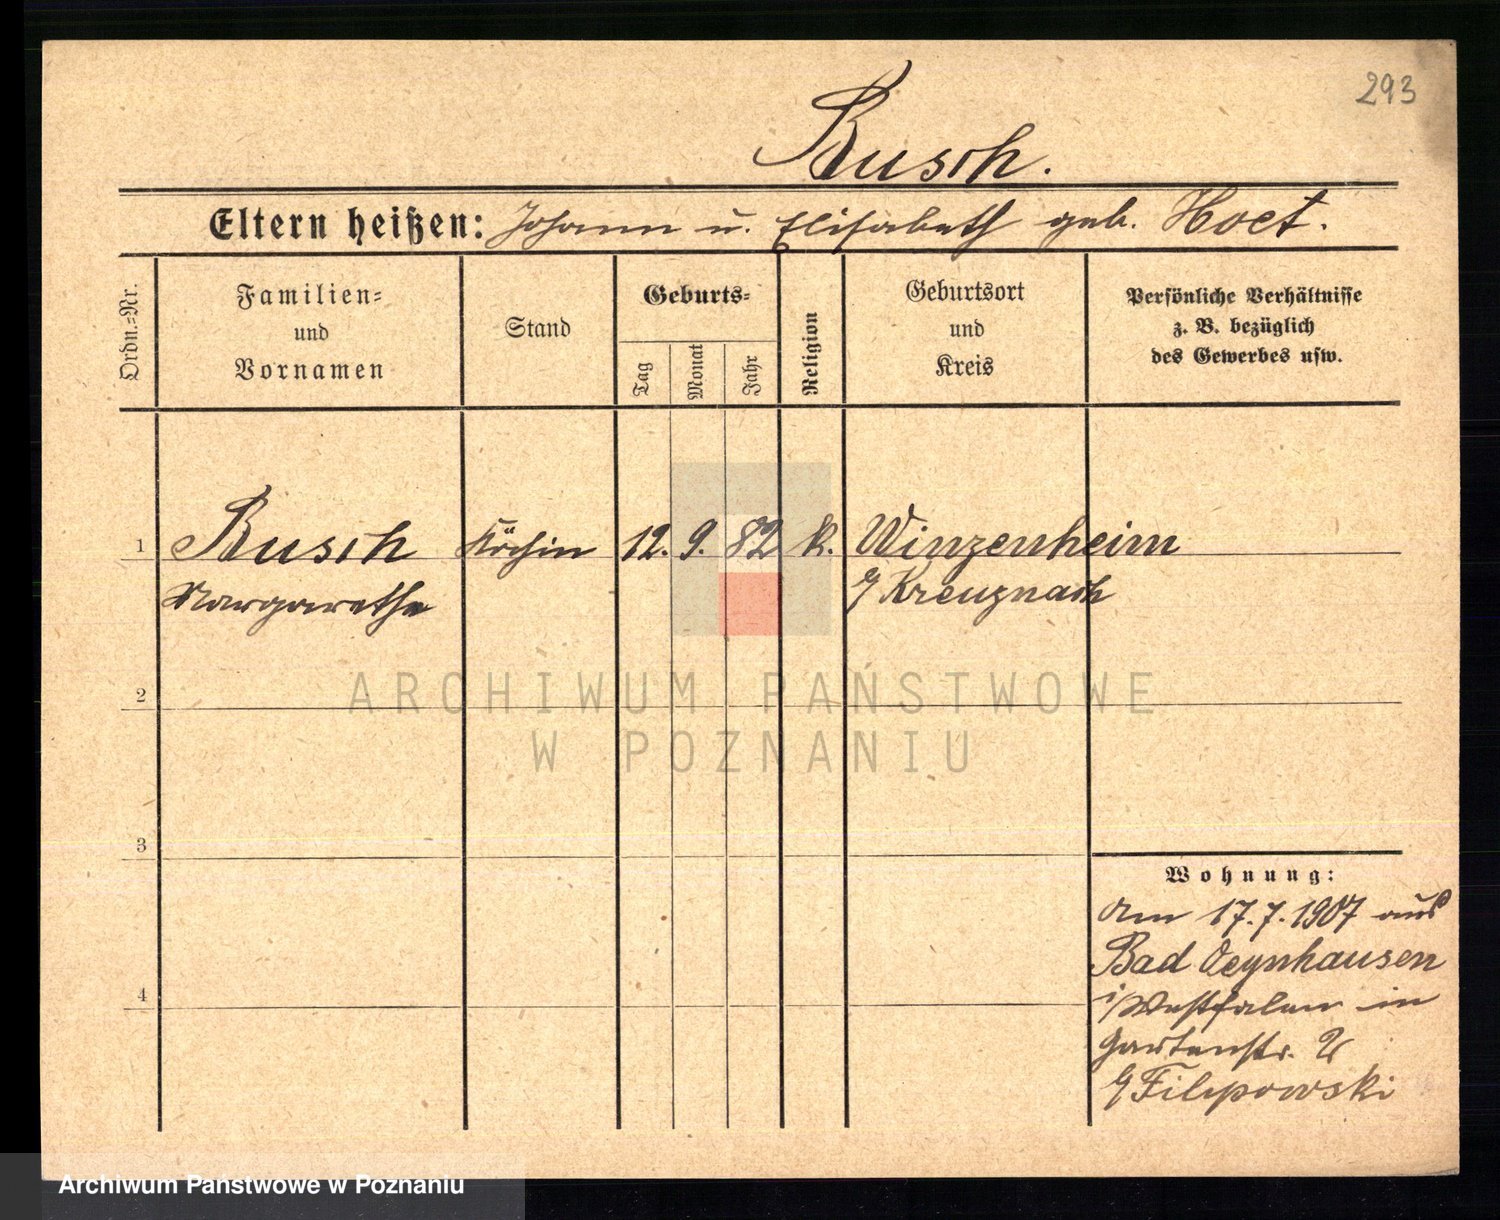 293
Busch.
Eltern heißen: Johann u. Elisabeth geb. Hoet.
Ordn.-Nr.
Familien-
und
Vornamen
Stand
Geburts-
Tag
Monat
Jahr
Religion
Geburtsort
und
Kreis
Persönliche Verhältnisse
z. B. bezüglich
des Gewerbes usw.
1 Busch Köchin 12. 9. 82 k. Winzenheim
Margarethe Kreuznach
ARCHIWUM PAŃSTWOWE
2
W POZNANIU
3
Wohnung:
Am 17.7.1907 aus
Bad Oeynhausen
4
i/Westfalen in
Gartenstr.
Filipowski
Archiwum Państwowe w Poznaniu